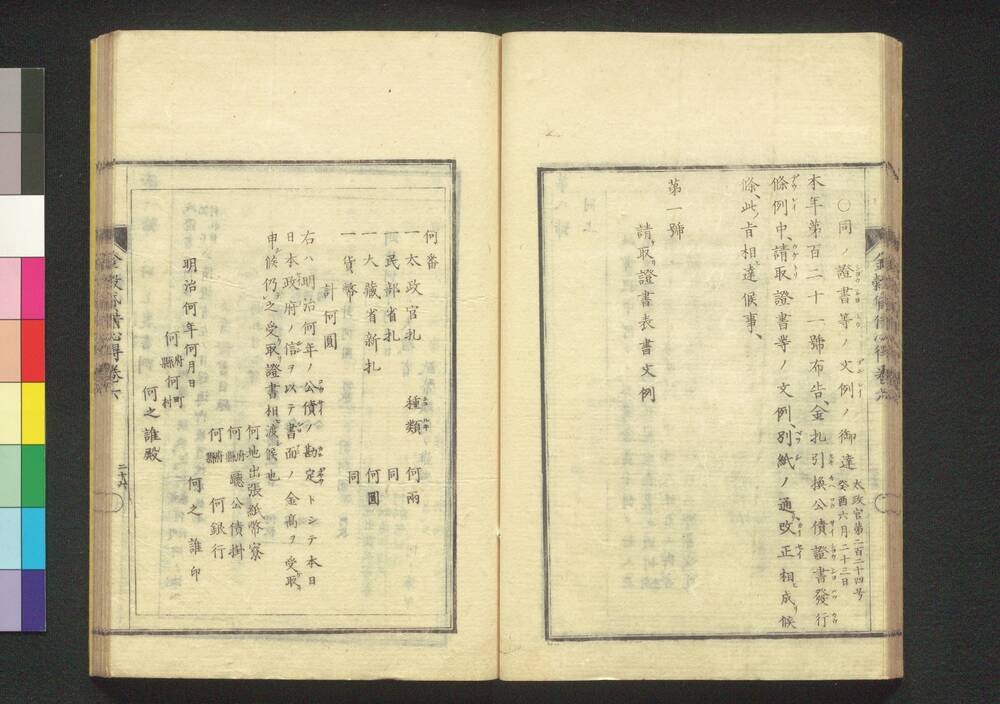 ○同ノ證書等ノ文例ノ御達 太政官第二百二十四号 癸酉六月二十三日
本年第百二十一號布告、金札引換公債證書發行
條例中、請取證書等ノ文例、別紙ノ通改正相成候
條、此旨相達候事、
第一號
請取證書表書文例
何番
一太政官札 種類 何兩
一民部省札 同
一大藏省新札 何圓
一貨幣 同
計何圓
右ハ明治何年ノ公債ノ勘定トシテ本日
日本政府ノ信ヲ以テ書面ノ金高ヲ受取
申候仍之受取證書相渡候也
何地出張紙幣寮
何府縣廳公債掛
何府縣 何銀行
何之誰印
明治何年何月日
何府縣何町村
何之誰殿
金穀貸借心得卷六
二十九